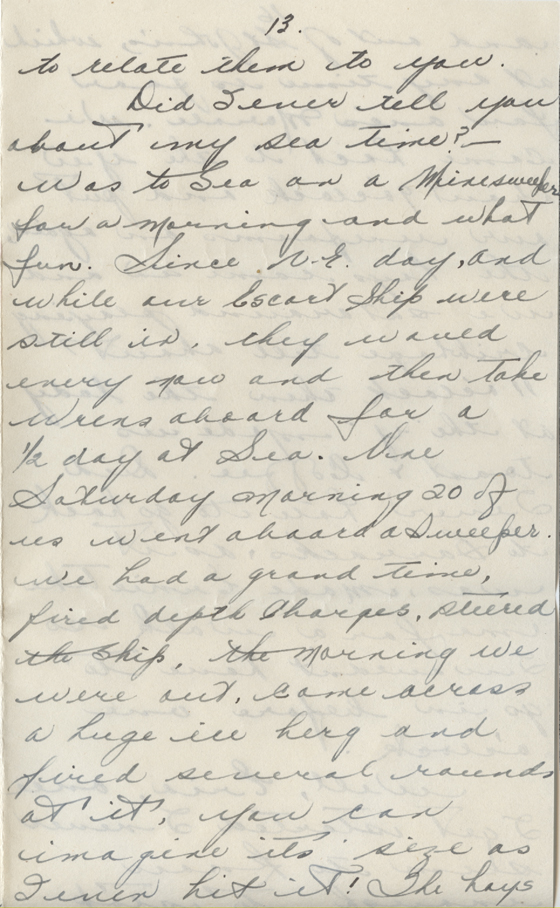 13.
to relate them to you.
Did I ever tell you
about my sea time? —
was to Sea on a Minesweeper
for a morning and what
fun. Since V.E. day, and
while our Escort Ship were
still in, they would
every now and then take
Wrens aboard for a
1/2 day at Sea. One
Saturday morning 20 of
us went aboard a Sweeper.
We had a grand time,
fired depth Charges, steered
the Ship, the morning we
were out, came across
a huge ice berg and
fired several rounds
at it, you can
imagine its' size as
I even hit it! The boys